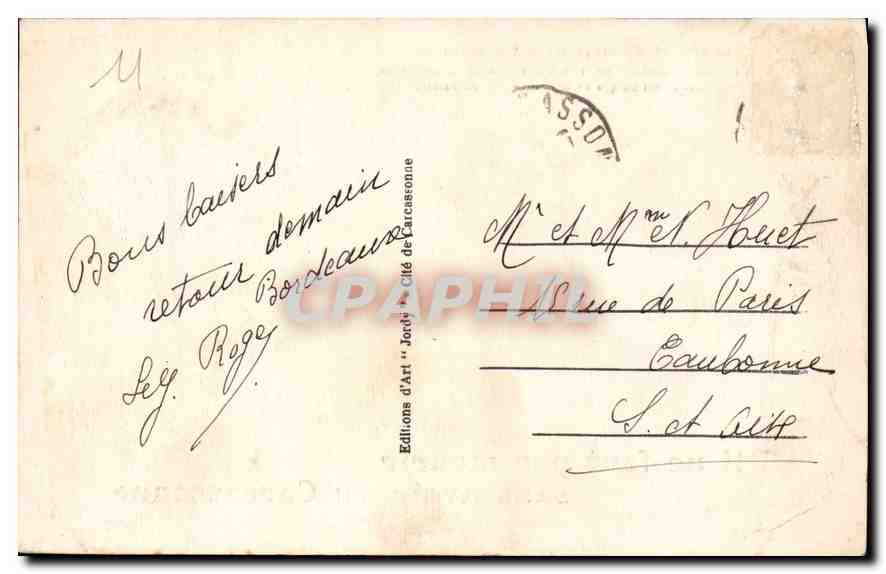 Bons baisers
retour demain
Bordeaux
Roger
Editions d'Art " Jordy " - Cité de Carcassonne
ASSON
Mr et Mme N. Huet
15 rue de Paris
Eaubonne
S. et Oise
CPAPHIL